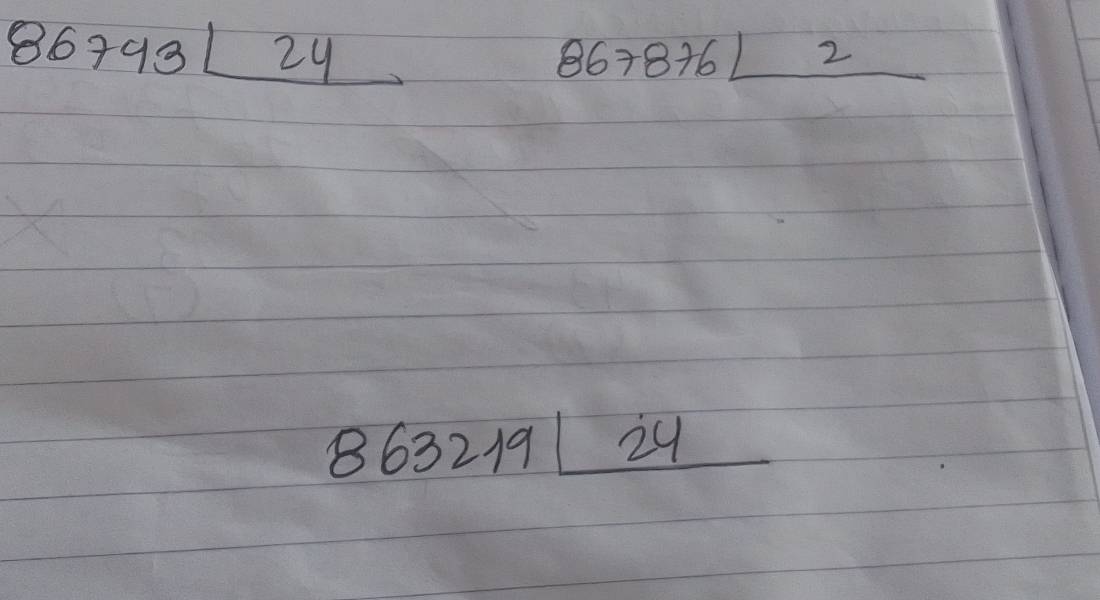 86793 24 867876 2
863219 24